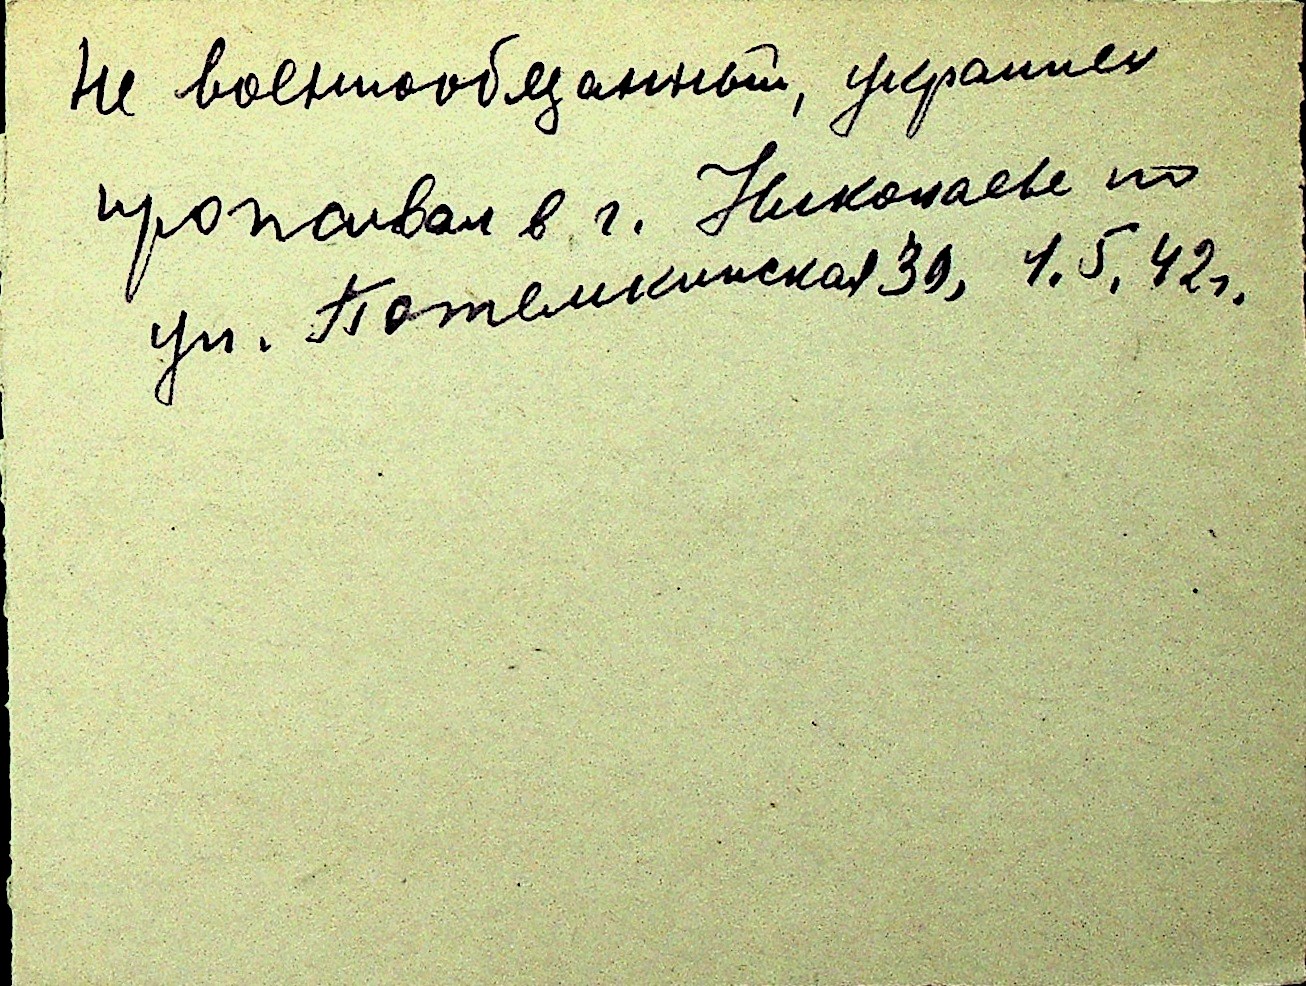 Не военнообязанный, украинец
проживал в г. Николаеве по
ул. Потемкинская 39, 1.5.42г.